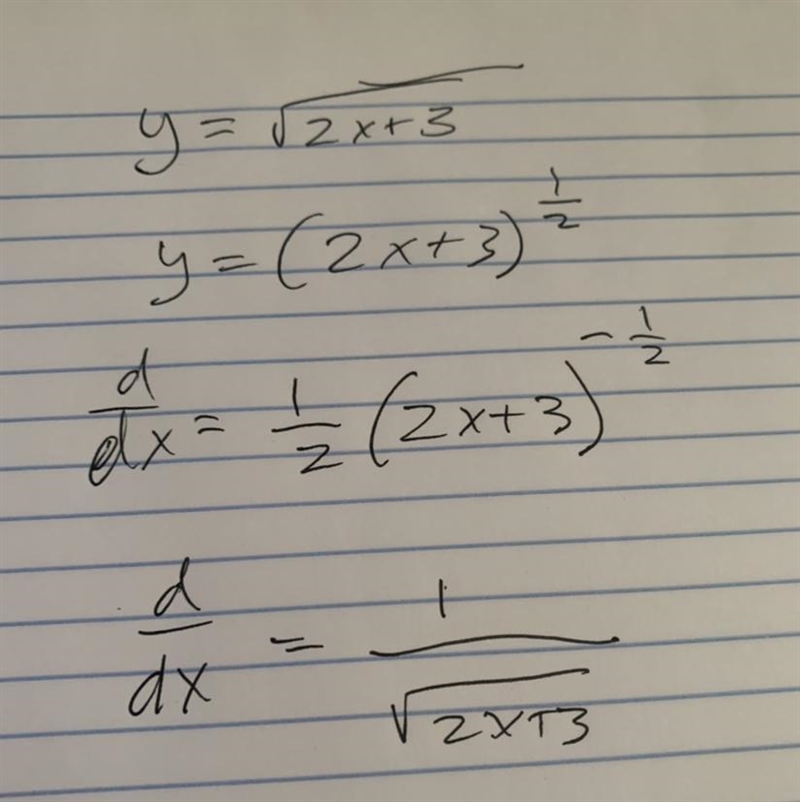 y = √(2x+3)
y = (2x+3)^(1/2)
d/dx = 1/2 (2x+3)^(-1/2)
d/dx = 1/√(2x+3)